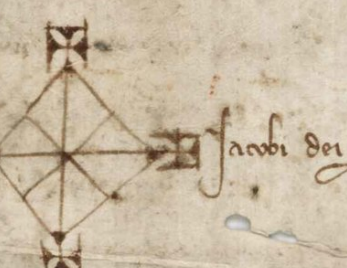 Jacobi dei